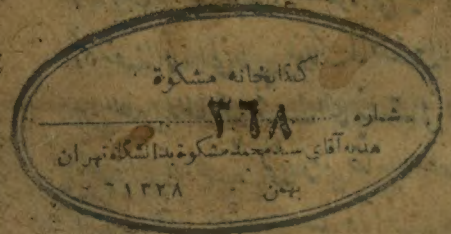 کتابخانه مشکوة
شماره ۳۶۸
هدیه آقای سید محمد مشکوة بدانشگاه تهران
بهمن ۱۳۲۸